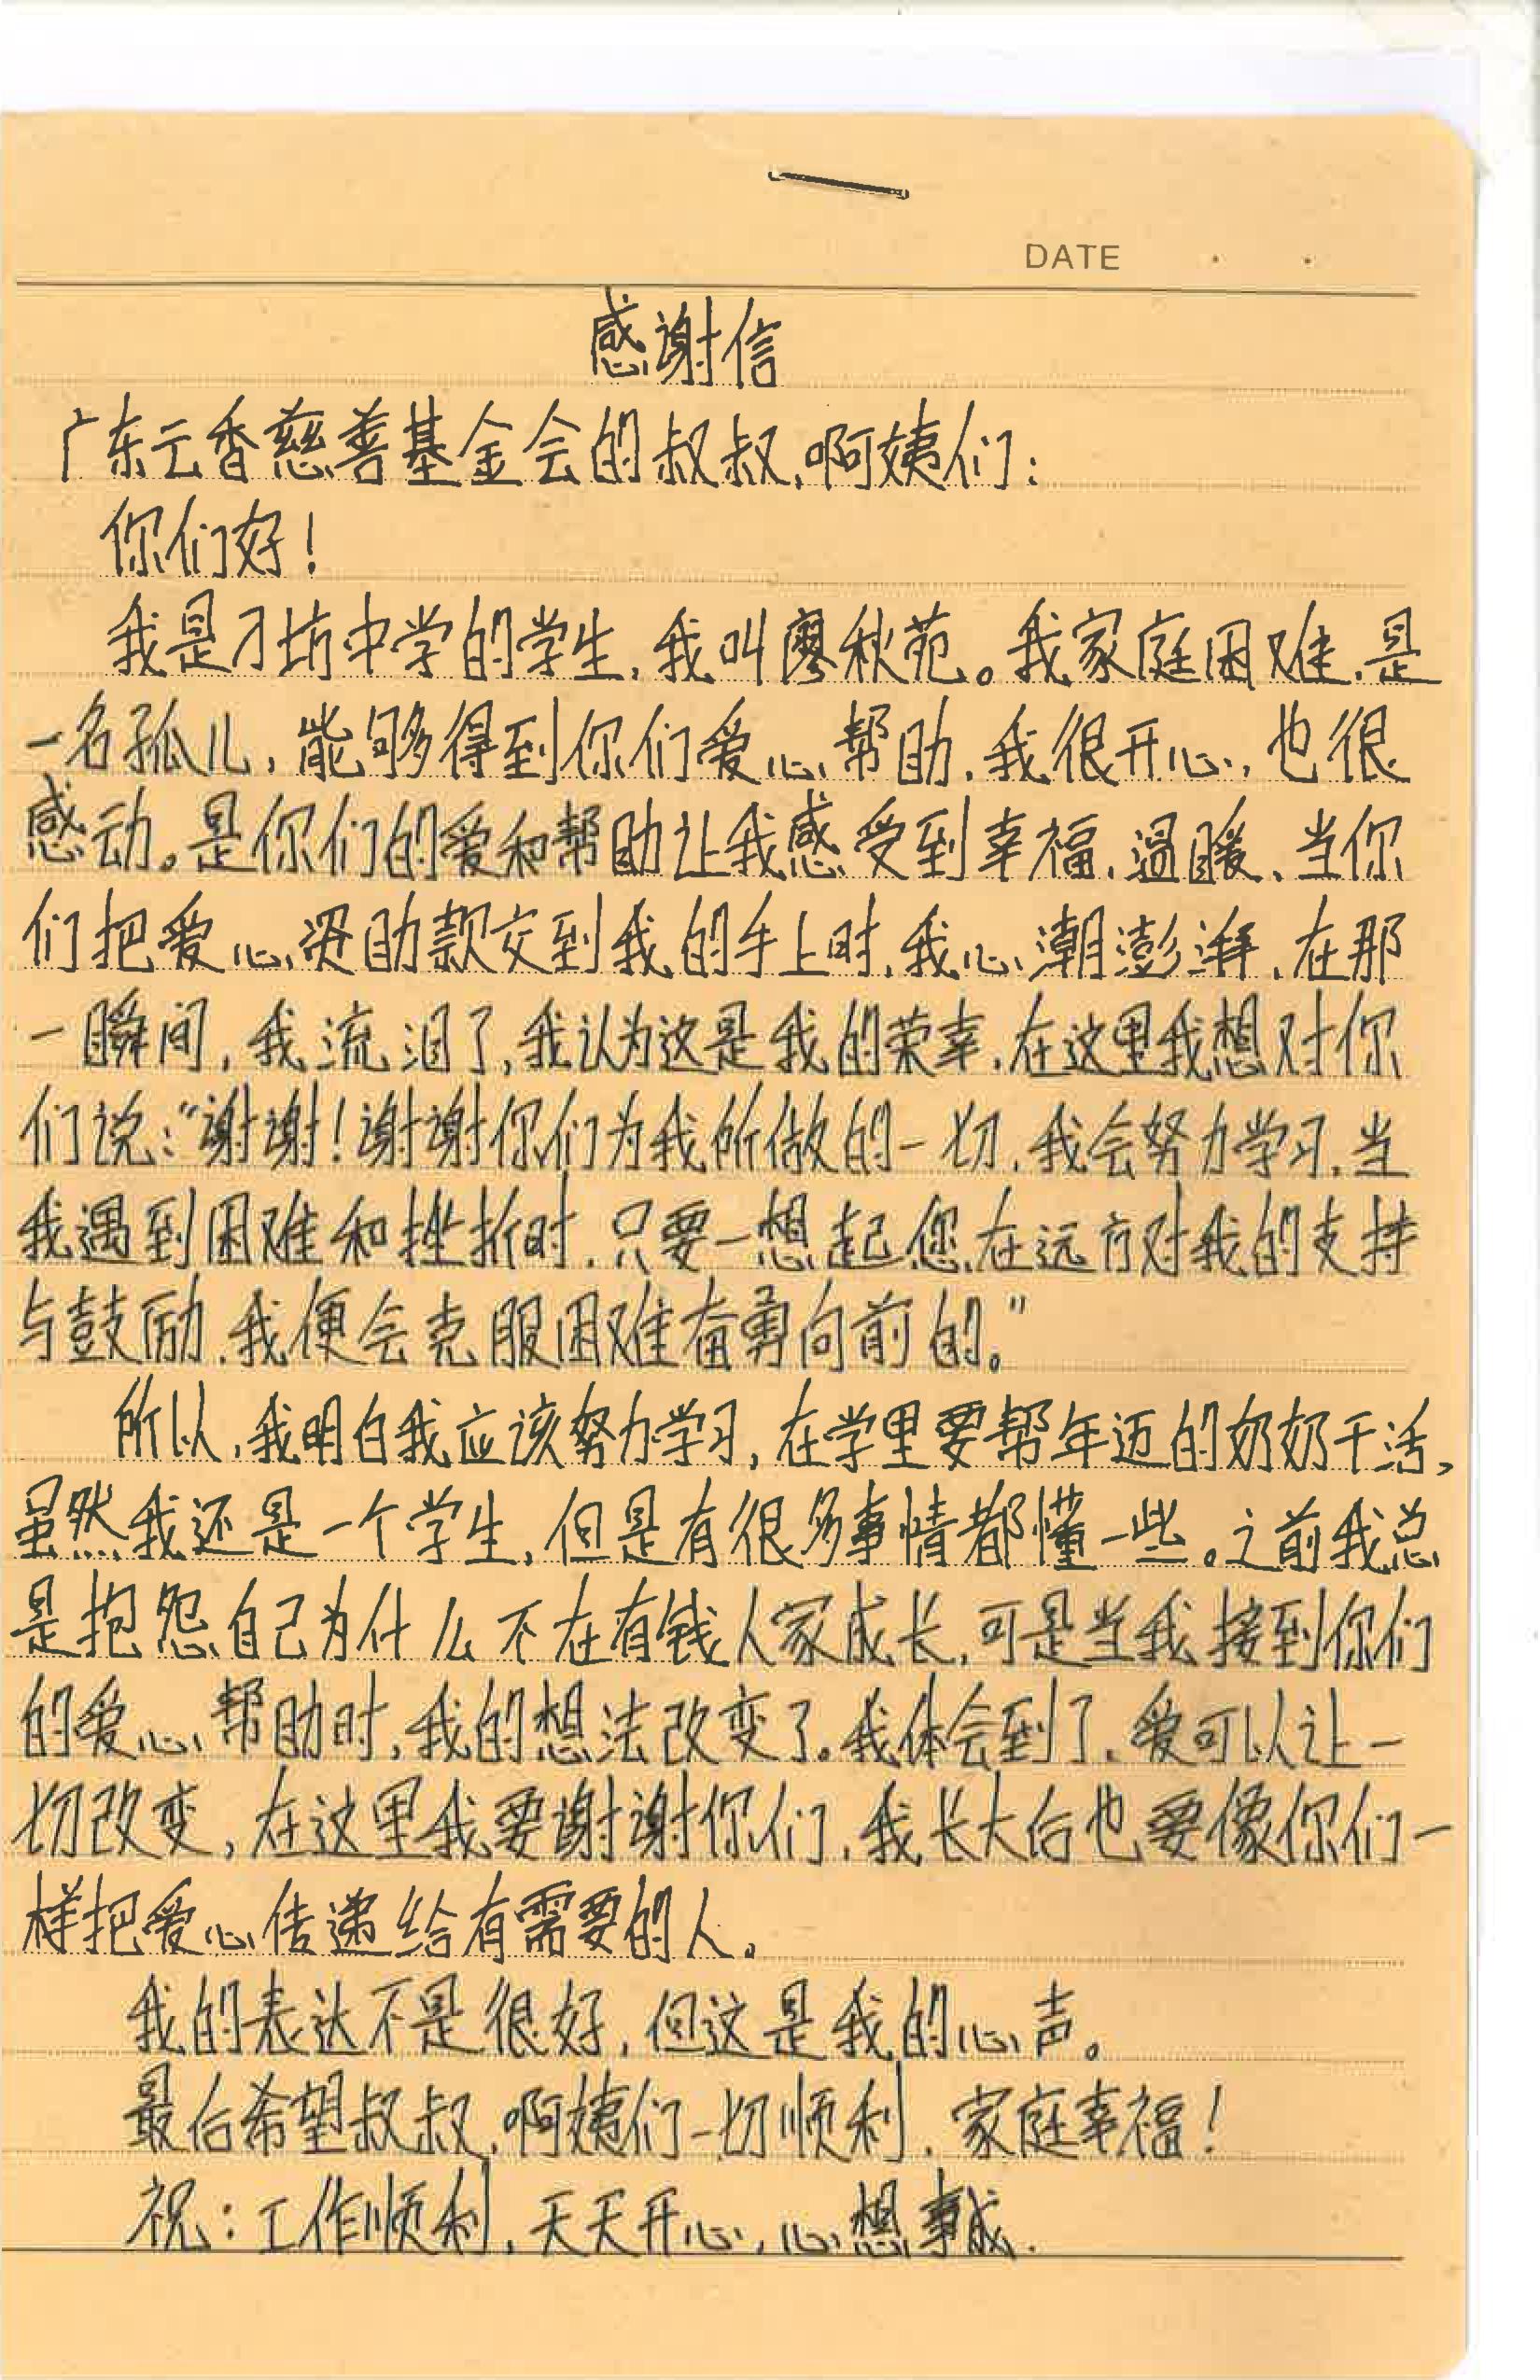 DATE . .
感谢信
广东云香慈善基金会的叔叔,啊姨们:
你们好!
我是刁坊中学的学生,我叫廖秋苑。我家庭困难,是
一名孤儿,能够得到你们爱心帮助,我很开心,也很
感动。是你们的爱和帮助让我感受到幸福,温暖,当你
们把爱心资助款交到我的手上时,我心潮澎湃,在那
一瞬间,我流泪了,我认为这是我的荣幸,在这里我想对你
们说:“谢谢!谢谢你们为我所做的一切,我会努力学习,当
我遇到困难和挫折时,只要一想起您在远方对我的支持
与鼓励,我便会克服困难奋勇向前的。”
所以,我明白我应该努力学习,在学里要帮年迈的奶奶干活,
虽然我还是一个学生,但是有很多事情都懂一些。之前我总
是抱怨自己为什么不在有钱人家成长,可是当我接到你们
的爱心帮助时,我的想法改变了。我体会到了,爱可以让一
切改变,在这里我要谢谢你们,我长大后也要像你们一
样把爱心传递给有需要的人。
我的表达不是很好,但这是我的心声。
最后希望叔叔,啊姨们一切顺利,家庭幸福!
祝:工作顺利,天天开心,心想事成.